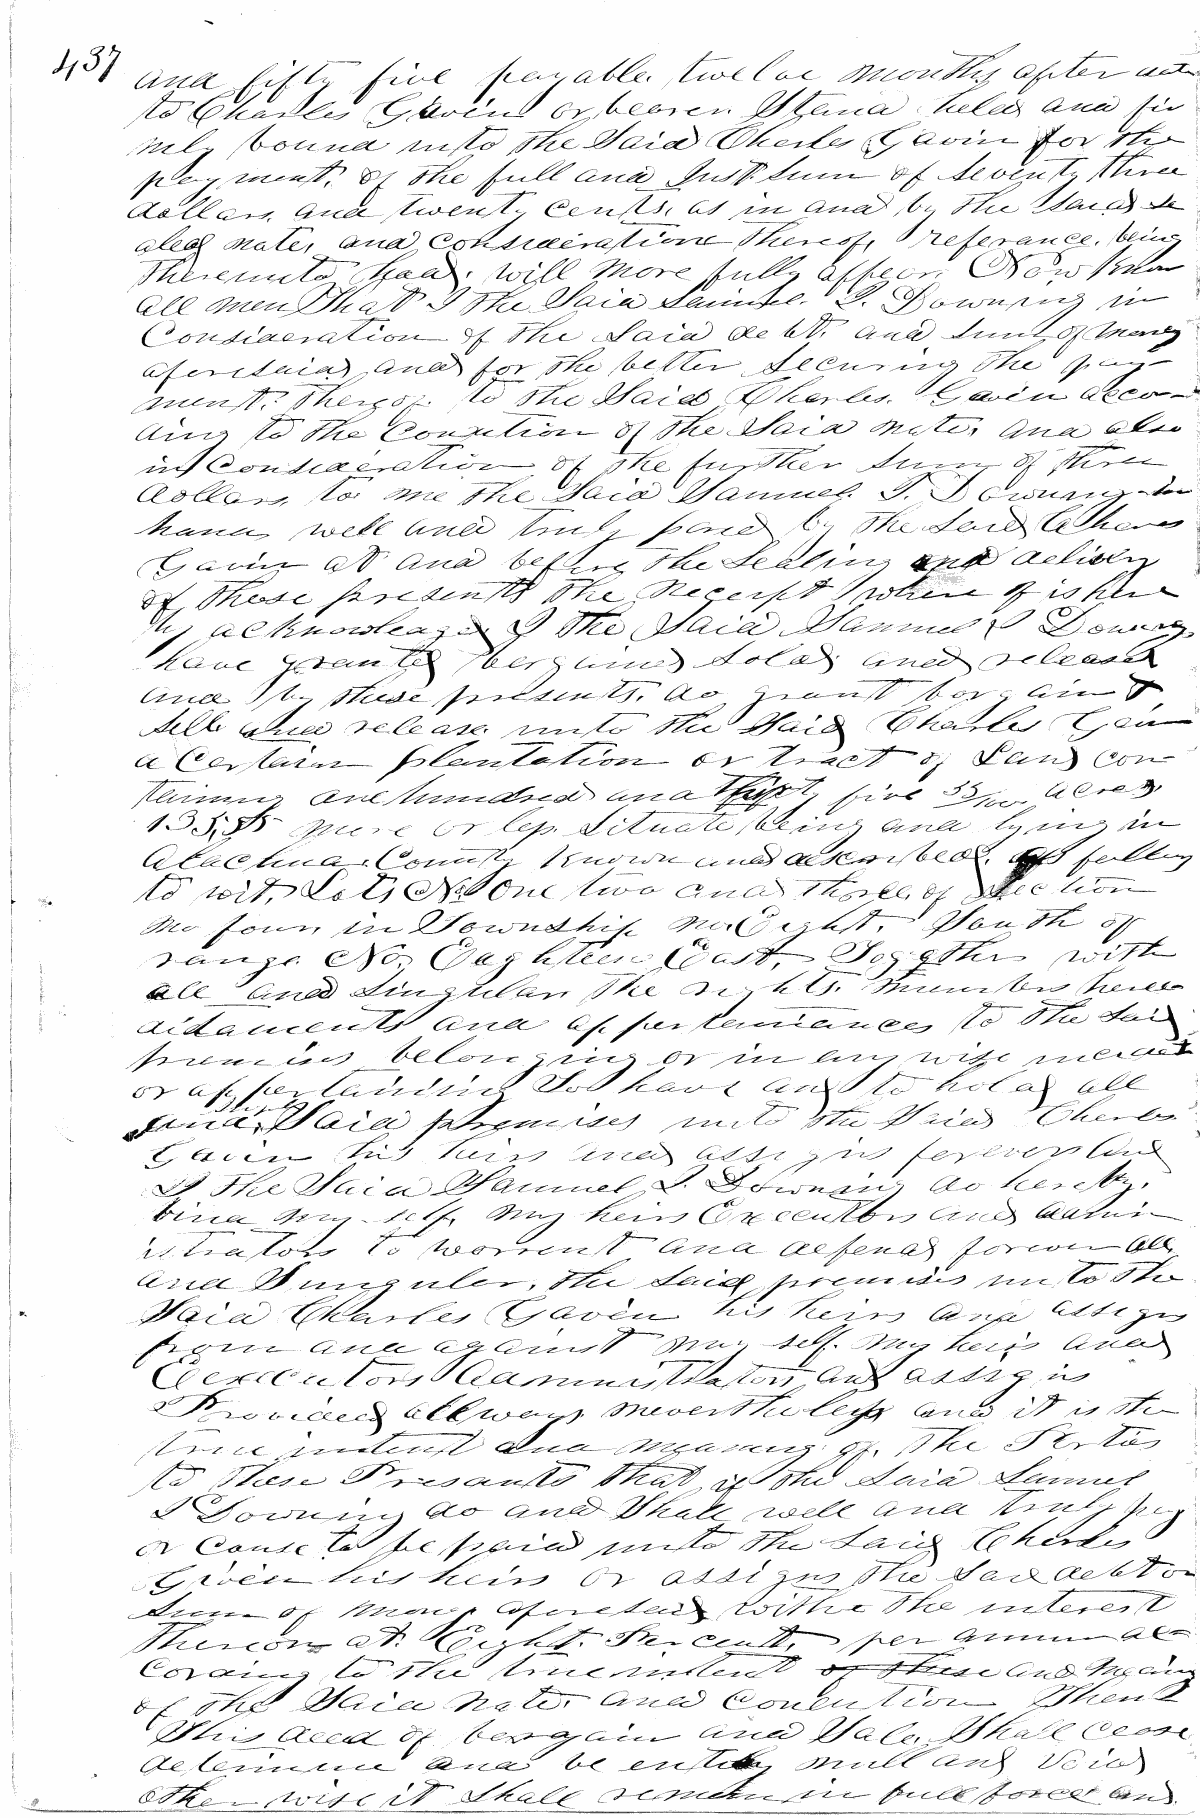 437
and fifty five payable twelve months after date
to Charles Gavin or bearer Stand held and fir
mly bound unto the Said Charles Gavin for the
payment, of the full and Just Sum of Seventy three
dollars, and twenty cents, as in and by the Said Se
aled note, and consideration thereof, referance, being
thereunto had, will more fully appear, Now know
all men that I the Said Samuel. S. Downing in
Consideration of the Said debt, and Sum of Money
aforesaid, and for the better Securing the pay
ment. thereof to the Said Charles. Gavin accor
ding to the Condition of the Said note, and also
in Consideration of the further Sum of three
dollars, to me the Said Samuel. S. Downing in
hand, well and truly paid by the Said Charles
Gavin at and before the Sealing and delivery
of these presents the Receipt where of is here
by acknowledged I the Said Samuel S Downing
have granted bargained Sold, and released
and by these presents, do grant bargain &
Sell and release, unto the Said Charles Gavin
a Certain plantation or tract of Land con
taining one hundred and thirty five 55/100 acres
135,55 more or less Situate, being and lying in
Alachua, County known and described, as follows
to wit, Lots No One two and three, of Section
no four, in Township no, Eight, South of
range No, Eaghteen East, Together with
all and Singular, the rights, members heree
ditaments and appertenances to the Said
premises belonging or in any wise incident
or appertaining To have and to hold all
and Said premises unto the Said Charles
Gavin his heirs and assigns forever And
I the Said Samuel S. Downing do hereby,
bind my self, my heirs Executors and admin
istrators to worrent and defend forever all,
and Singuler, the Said premises unto the
Said Charles Gaven his heirs and assigns
from and against my self. my heirs and
Eexecutors Administrators and assigns
Provided allways nevertheless and it is the
true intent and meaning of the Parties
to these Presants that if the Said Samuel
S Downing do and Shall well and truly pay
or Cause to be paid unto the Said Charles
Given his heirs or assigns the Said debt or
Sum of Money aforesaid withe the interest
thereon at. Eight. Percent, per annum ac
cording to the true intent of these and Meaning
of the Said note, and condition Then
this deed of bergain and Sale, Shall cease
determine and be entirely null and Void
other wise it Shall remain in full force and